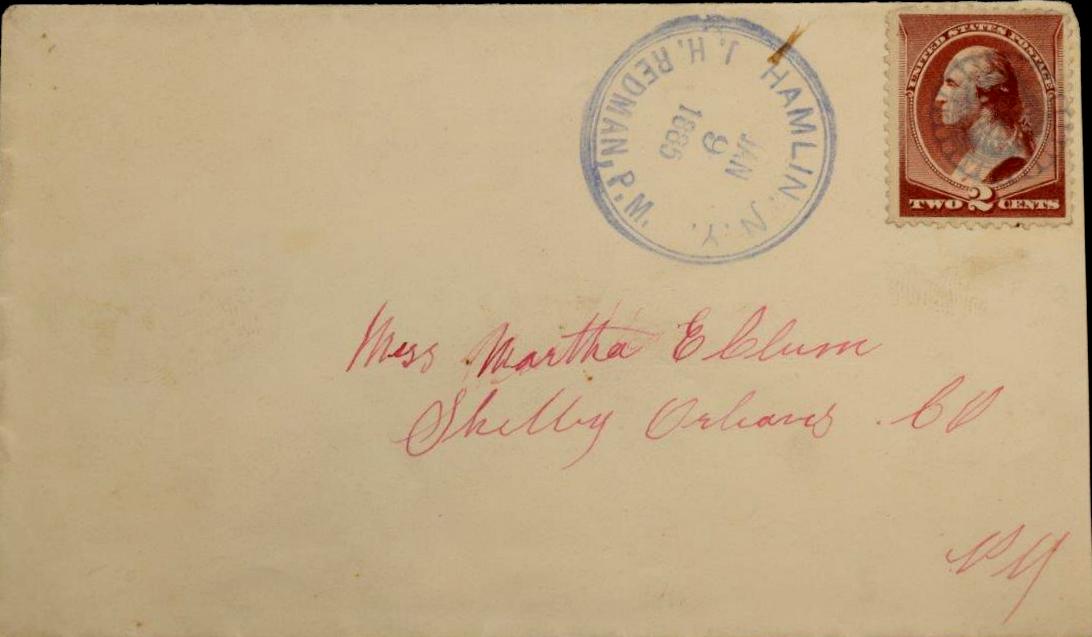 HAMLIN, N.Y.
JAN
9
1885
J. H. REDMAN, P. M.
UNITED STATES POSTAGE
TWO 2 CENTS
Miss Martha E Clum
Shelby Orleans Co
NY